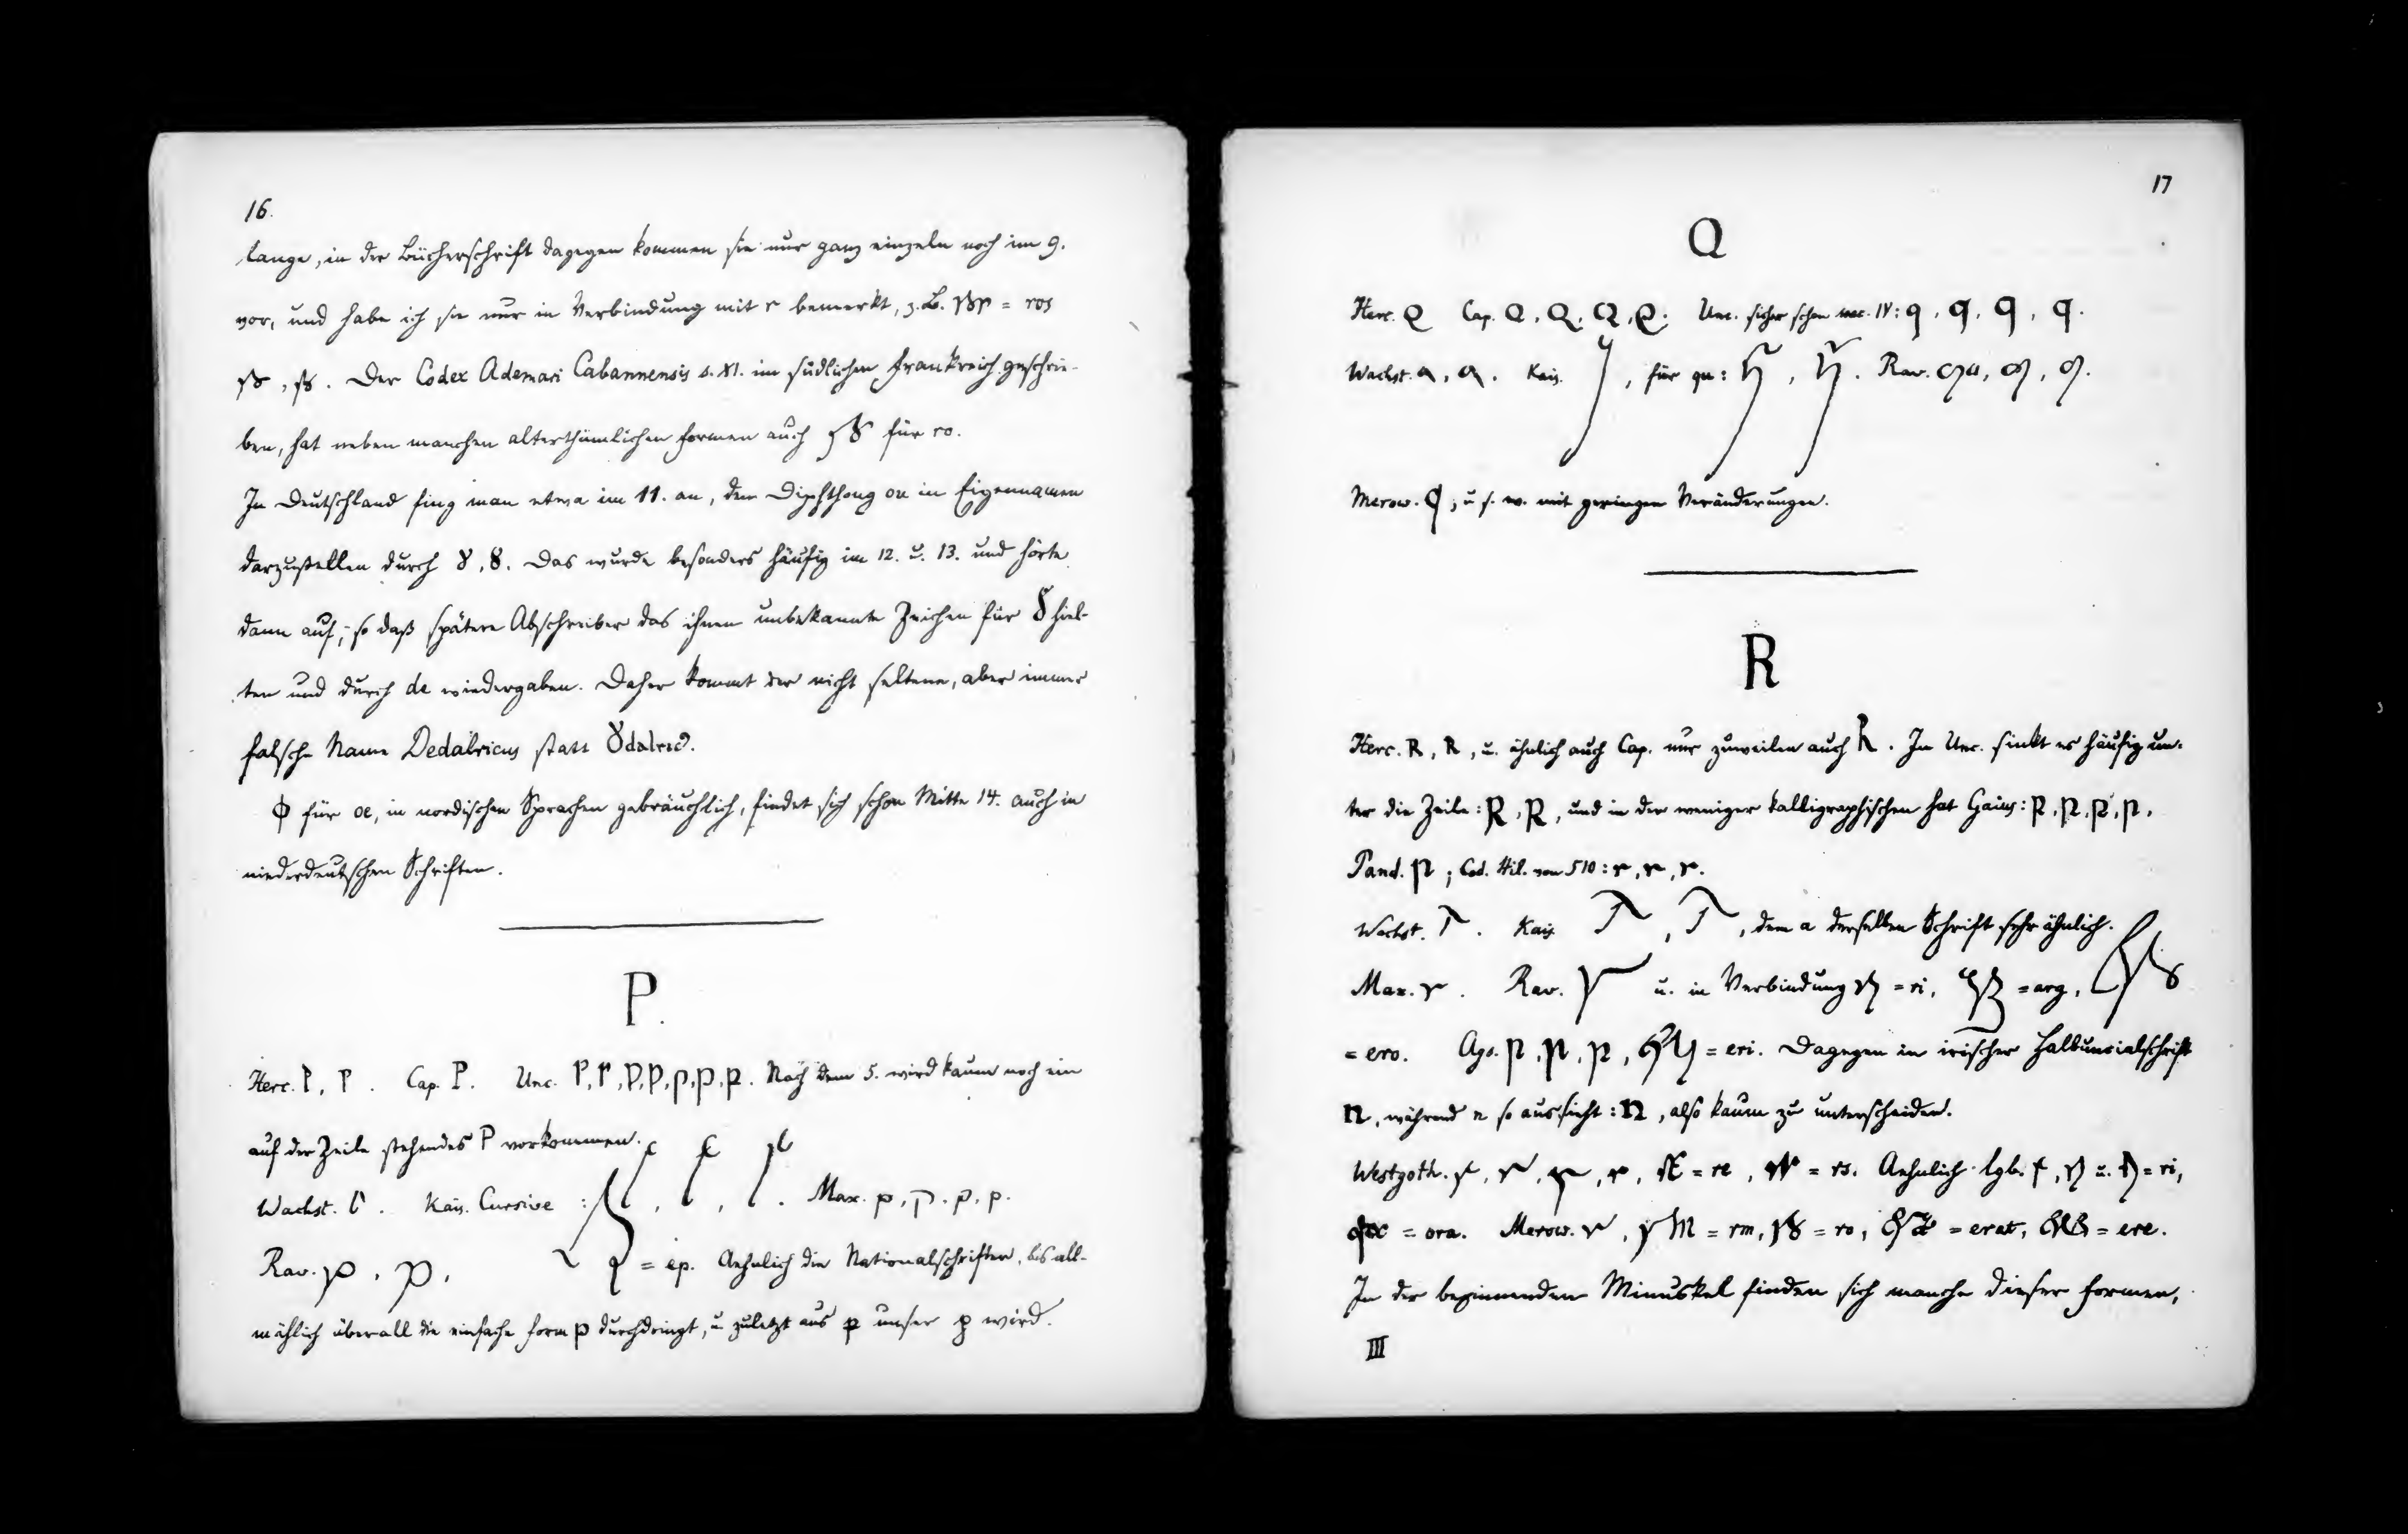 16.
lange, in der Bücherschrift dagegen kommen sie nur ganz einzeln noch im 9.
vor, und habe ich sie nur in Verbindung mit r bemerkt, z. B. = ros
Der Codex Ademari Cabannensis s. XI. im südlichen Frankreich geschrie-
ben, hat neben manchen alterthümlichen Formen auch für ro.
In Deutschland fing man etwa im 11. an, den Diphthong ou in Eigennamen
darzustellen durch 8, 8. Das wurde besonders häufig im 12. u. 13. und hörte
dann auf, so daß spätere Abschreiber das ihnen unbekannte Zeichen für hiel-
ten und durch de wiedergaben. Daher kommt der nicht seltene, aber immer
falsche Name Dedalricus statt
ϕ für oe, in nordischen Sprachen gebräuchlich, findet sich schon Mitte 14. auch in
niederdeutschen Schriften.
P.
Herc. P, P. Cap. P. Unc. P, P, P, P, p, p, p. Nach dem 5. wird kaum noch ein
auf der Zeile stehendes P vorkommen.
Wachst. Kais. Cursive : Max. p, p, p, p.
Rav. p, p, = ep. Aehnlich die Nationalschriften, bis all-
mählich überall die einfache Form p durchdringt, u. zuletzt aus p unser p wird.
17
Q
Herc. Q Cap. Q, Q, Q, Q; Unc. sicher schon saec. IV: q, q, q, q.
Wachst. Kais. , für qu: Rav.
Merow. q, u. s. w. mit geringen Veränderungen.
R
Herc. R, R, u. ähnlich auch Cap. nur zuweilen auch R. In Unc. sinkt es häufig un-
ter die Zeile: R, R, und in der weniger kalligraphischen hat Gaius:
Pand. ; Cod. Hil. von 510: r, r, r.
Wachst. Kais. , dem a derselben Schrift sehr ähnlich.
Max. r. Rav. u. in Verbindung = ri, = arg,
= ero. Ags. = eri. Dagegen in irischer Halbuncialschrift
n, während n so aussieht: n, also kaum zu unterscheiden.
Westgoth. = re, = rs. Aehnlich lgb. u. = ri,
= ora. Merow. = rm, = ro, = erat, = ere.
In der beginnenden Minuskel finden sich manche dieser Formen,
III